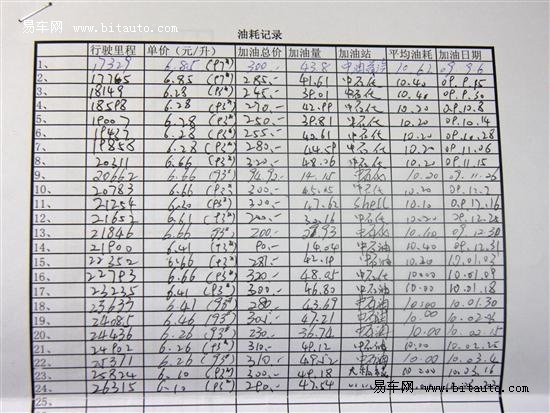 易车网
www.bitauto.com
易车网
www.bitauto.com
油耗记录
行驶里程 单价（元/升） 加油总价 加油量 加油站 平均油耗 加油日期
1、 17329 6.85 (97#) 300 43.8 10.62 09.9.6
2、 17765 6.85 (97#) 285 41.61 中石化 10.40 09.9.15
3、 18149 6.28 (93#) 245 39.01 中石化 10.40 09.9.30
4、 18598 6.28 (93#) 270 42.99 中石化 10.20 09.10.8
5、 19007 6.28 (93#) 250 39.81 中石化 10.20 09.10.14
6、 19437 6.28 (93#) 255 40.61 中石化 10.20 09.10.28
7、 19858 6.28 (93#) 280 44.59 中石化 10.20 09.11.06
8、 20311 6.66 (93#) 320 48.06 中石化 10.21 09.11.15
9、 20662 6.66 (93#) 14.15 10.20 09.11.26
10、 20783 6.66 (93#) 300 45.05 中石化 10.20 09.12.7
11、 21254 6.30 (93#) 300 47.62 Shell 10.10 09.12.16
12、 21652 6.61 (93#) 200 中石化 10.20 09.12.25
13、 21846 6.66 (93#) 200 中石化 10.40 09.12.30
14、 21900 6.41 (93#) 90 14.04 中石油 10.40 09.12.31
15、 22352 6.66 (93#) 281 42.19 中石油 10.20 10.01.03
16、 22793 6.66 (93#) 320 48.05 中石化 10.00 10.01.09
17、 23235 6.41 (93#) 300 46.80 中石油 10.00 10.01.18
18、 23637 6.41 (93#) 280 43.69 中石油 10.00 10.01.30
19、 24085 6.46 (93#) 47.21 中石油 10.00
20、 24436 6.26 (93#) 230 36.74 中石油 10.00 10.02.15
21、 24902 6.26 (93#) 310 49.52 中石油 10.00 10.02.25
22、 25371 6.26 (93#) 310 49.52 中石油 10.00 10.03.4
23、 25824 6.10 (93#) 300 49.18 10.00
24、 26315 6.10 (93#) 290 47.54
25、
易车网
www.bitauto.com